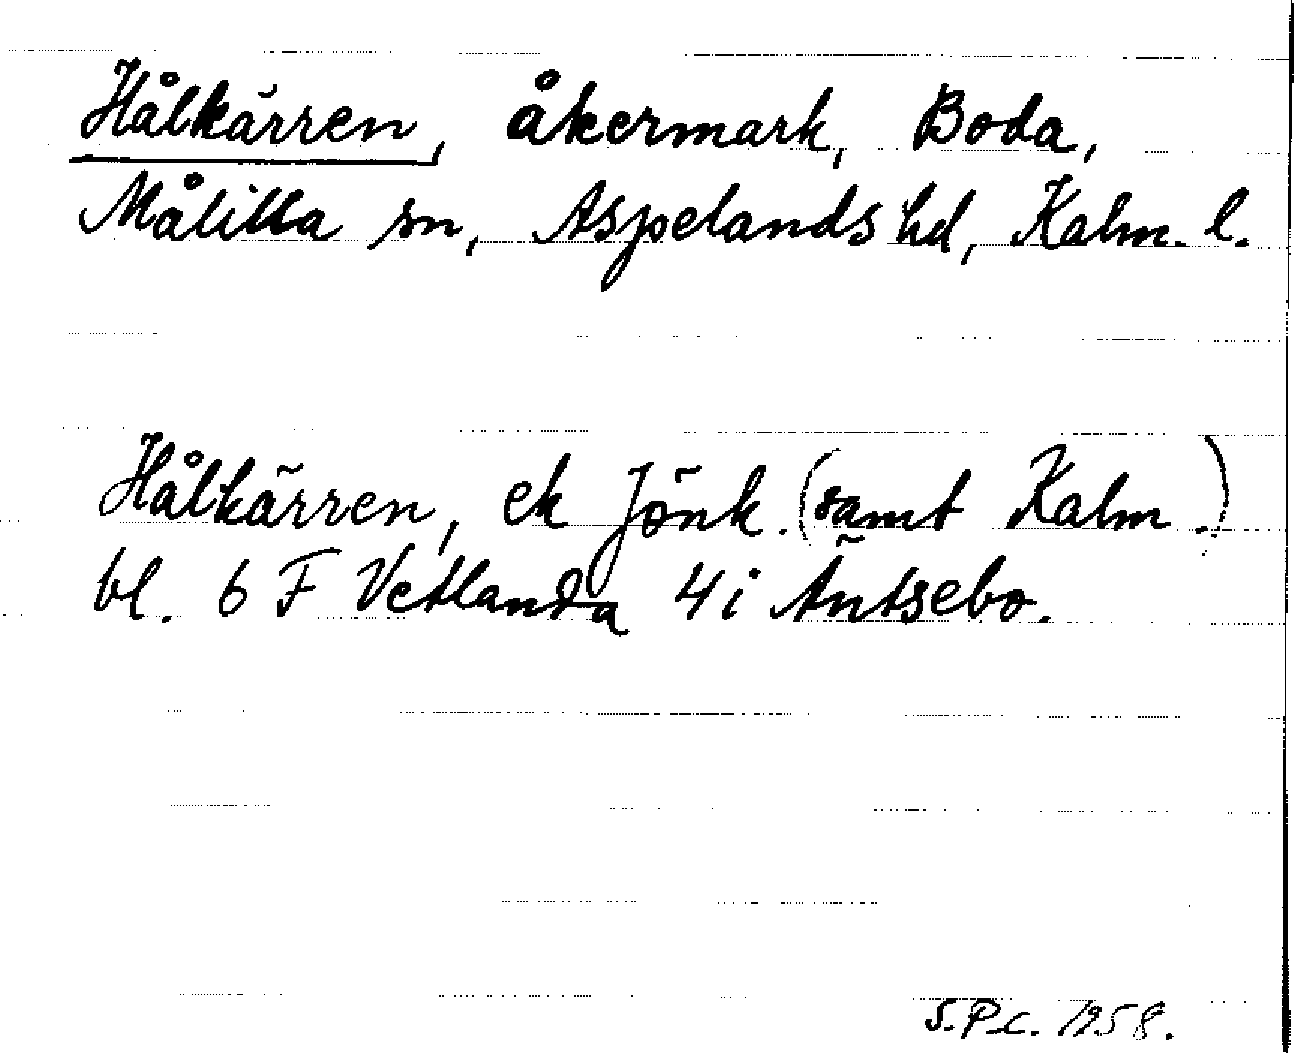 Hålkärren, åkermark, Boda,
Målilla sn, Aspelands hd, Kalm. l.
Hålkärren, ek Jönk. (samt Kalm.)
bl. 6 F Vetlanda 4 i Äntsebo.
S.P.C. 1958.